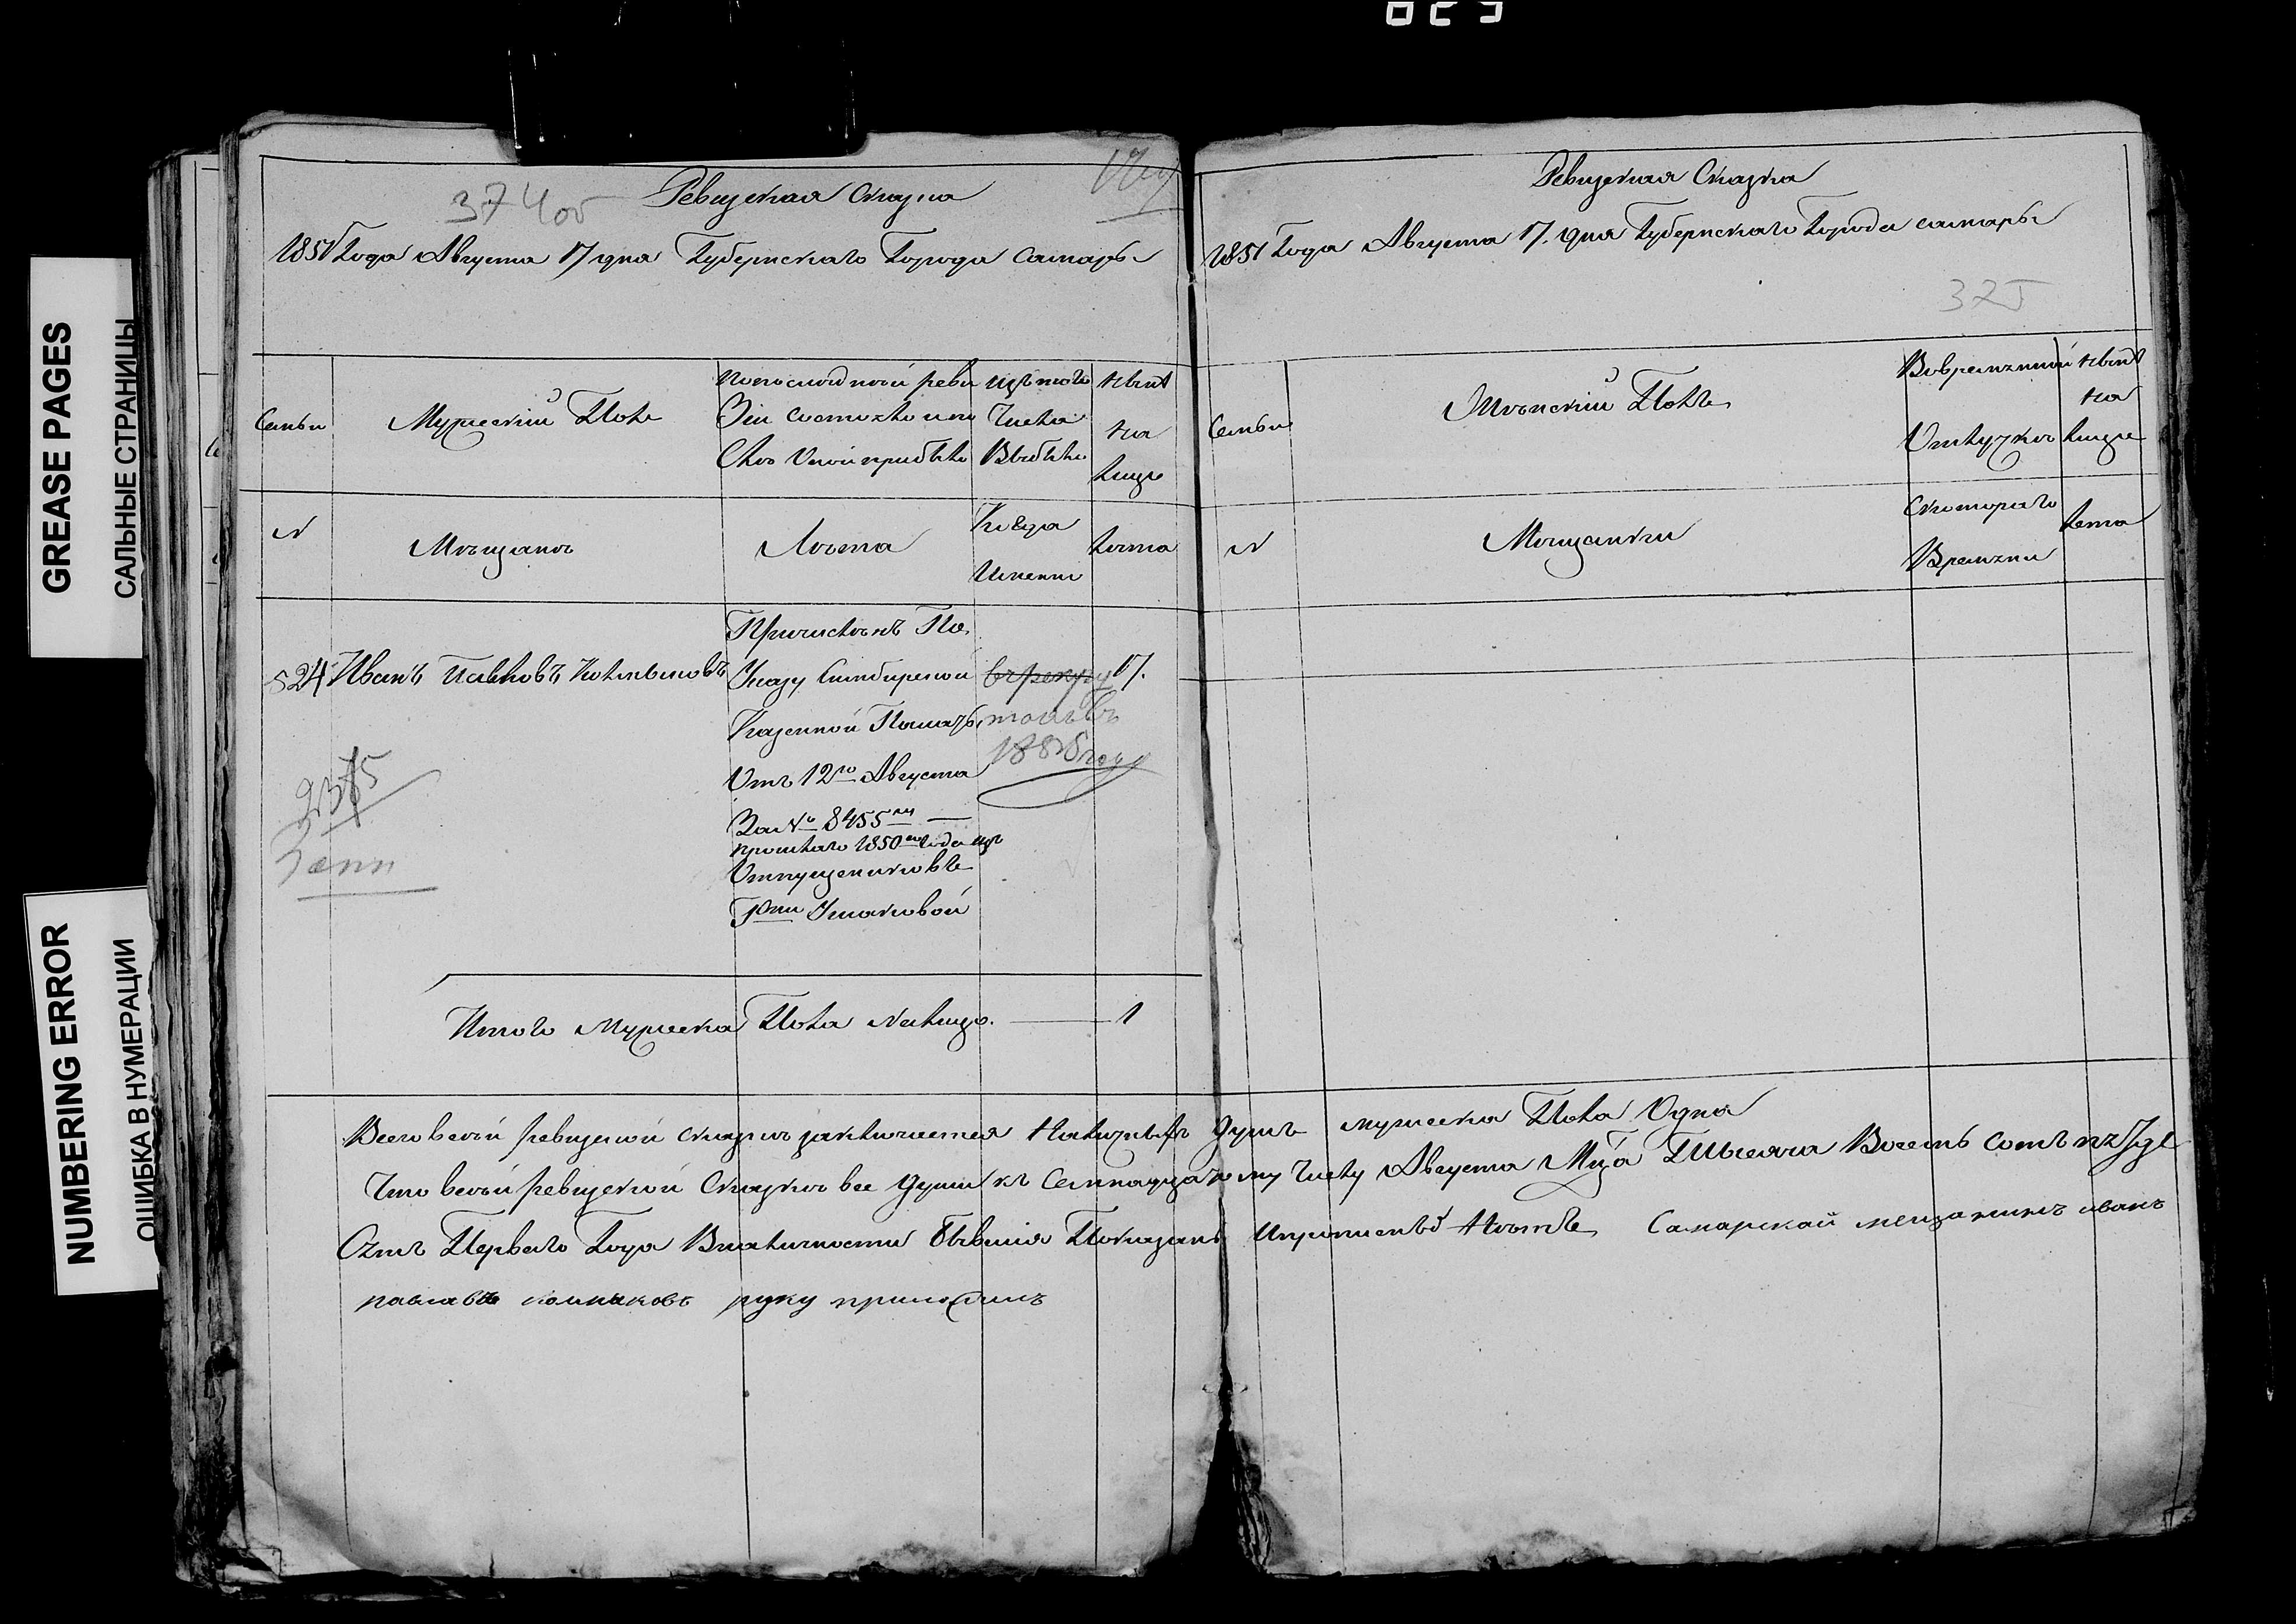 GREASE PAGES
САЛЬНЫЕ СТРАНИЦЫ
NUMBERING ERROR
ОШИБКА В НУМЕРАЦИИ
374 об
Ревизская Сказка
1851 Года Августа 17 дня Губернскаго Города Самары
Семьи
Мужеский Полъ
По последней реви
зіи состояло и по
слѣ оной прибыло
Изъ того
числа
выбыло
Нынѣ
на
лицо
№
Мѣщанъ
Лѣта
Когда
именно
Лѣта
524
Иванъ Павловъ Колмыковъ
Причисленъ По
Указу Симбирской
Казенной Палаты
Отъ 12го Августа
За № 8455м
прошлаго 1850го года изъ
Отпущениковъ
Гжи Ушаковой
17.
2375
Итого Мужеска Пола Налицо 1
Ревизская Сказка
1851 Года Августа 17. дня Губернскаго Города Самары
375
Семьи
Женскій Полъ
Вовременной
Отлучкѣ
Нынѣ
на
лице
№
Мещанки
Скотораго
Времени
Лета
Всего въ сей ревизской сказкѣ заключается наличныхъ душъ мужеска Пола Одна
Что въ сей ревизской Сказкѣ все души къ Семнадцатому Числу Августа Мца Тысяча Восемь сотъ пядде
сятъ Перваго Года Вналичности Бывшія Показаны Ипрописныхъ Нѣтъ Самарской мещанинъ иванъ
павловъ колмыковъ руку приложилъ